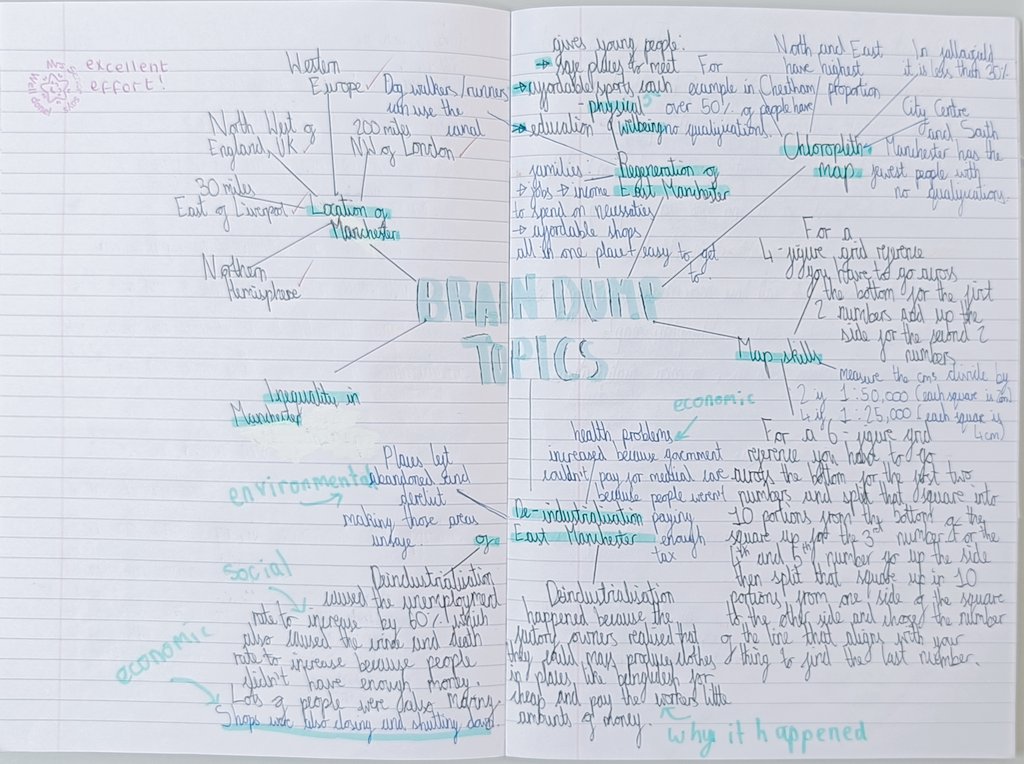 excellent
effort!
Western
Europe
Dog walkers/runners
can use the
canal
North West of
England, UK
200 miles
NW of London
30 miles
East of Liverpool
Location of
Manchester
Northern
Hemisphere
BRAIN DUMP
TOPICS
Inequality in
Manchester
gives young people:
→ safe places to meet
→ affordable sports such
- physical
→ education & wellbeing
Regeneration of
East Manchester
families:
→ jobs → income
to spend on necessities
→ affordable shops
all in one place + easy to get
to.
For
example in Cheetham
over 50% of people have
no qualifications.
North and East
have highest
proportion
In sallavield
it is less than 30%
City Centre
and South
Manchester has the
fewest people with
no qualifications.
Chloropleth
map
Map skills
For a
4-figure grid refrence
you have to go across
the bottom for the first
2 numbers and up the
side for the second 2
numbers
measure the cms divide by
2 if 1:50,000 (each square is 2cm)
4 if 1:25,000 (each square is
4cm)
For a 6-figure grid
refrence you have to go
across the bottom for the first two
numbers and split that square into
10 portions from the bottom of the
square up for the 3rd number. For the
4th and 5th number go up the side
then split that square up in 10
portions from one side of the square
to the other side and chose the number
of the line that aligns with your
thing to find the last number.
economic
health problems
increased because government
couldn't pay for medical care
because people weren't
paying
enough
tax
De-industrialisation
of East Manchester
environmental
Places left
abandoned and
derelict
making those areas
unsafe.
social
Deindustrialisation
caused the unemployment
rate to increase by 60% which
also caused the crime and death
rate to increase because people
didn't have enough money.
Lots of people were also moving.
economic
Shops were also closing and shutting down.
Deindustrialisation
happened because the
factory owners realised that
they could mass produce clothes
in places like Bangladesh for
cheap and pay the workers little
amounts of money.
why it happened